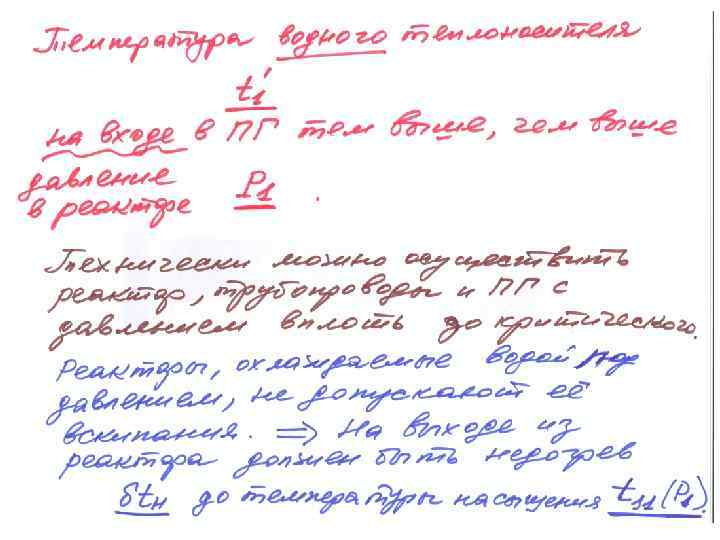 Температура водного теплоносителя
t₁'
на входе в ПГ тем выше, чем выше
давление
в реакторе P₁ .
Технически можно осуществить
реактор, трубопроводы и ПГ с
давлением вплоть до критического.
Реакторы, охлаждаемые водой под
давлением, не допускают её
вскипания. ⇒ На выходе из
реактора должен быть недогрев
δtн до температуры насыщения t_{s1}(P₁).